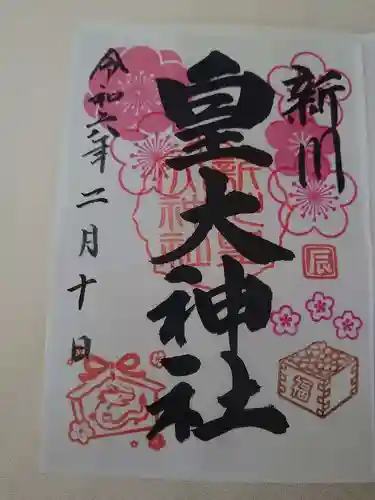 新川
皇大神社
令和六年二月十日
新川皇大神社
辰
福